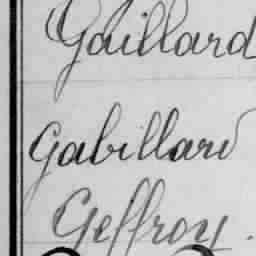 Gaillard
Gabillard
Geffroy.